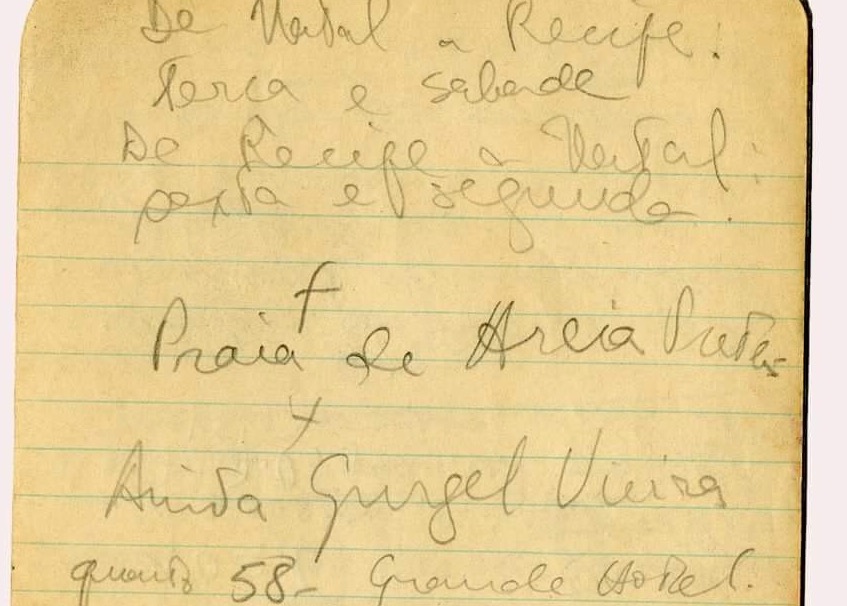 De Natal a Recife:
terca e sabado
De Recife a Natal:
sexta e segunda.
Praia de Areia Preta
Anita Gurgel Vieira
quarto 58- Grande Hotel.